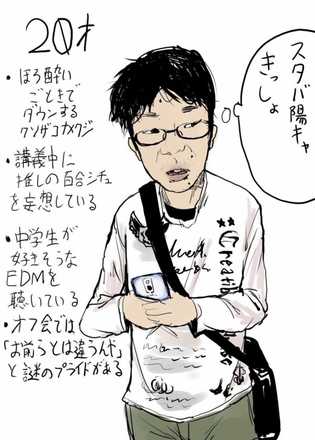 20才
・ほろ酔い
ごときで
ダウンする
クソザコナメクジ
・講義中に
推しの百合シチュ
を妄想している
・中学生が
好きそうな
EDMを
聴いている
・オフ会では
「お前らとは違うんだ」
と謎のプライドがある
スタバ陽キャ
きっしょ
Creati